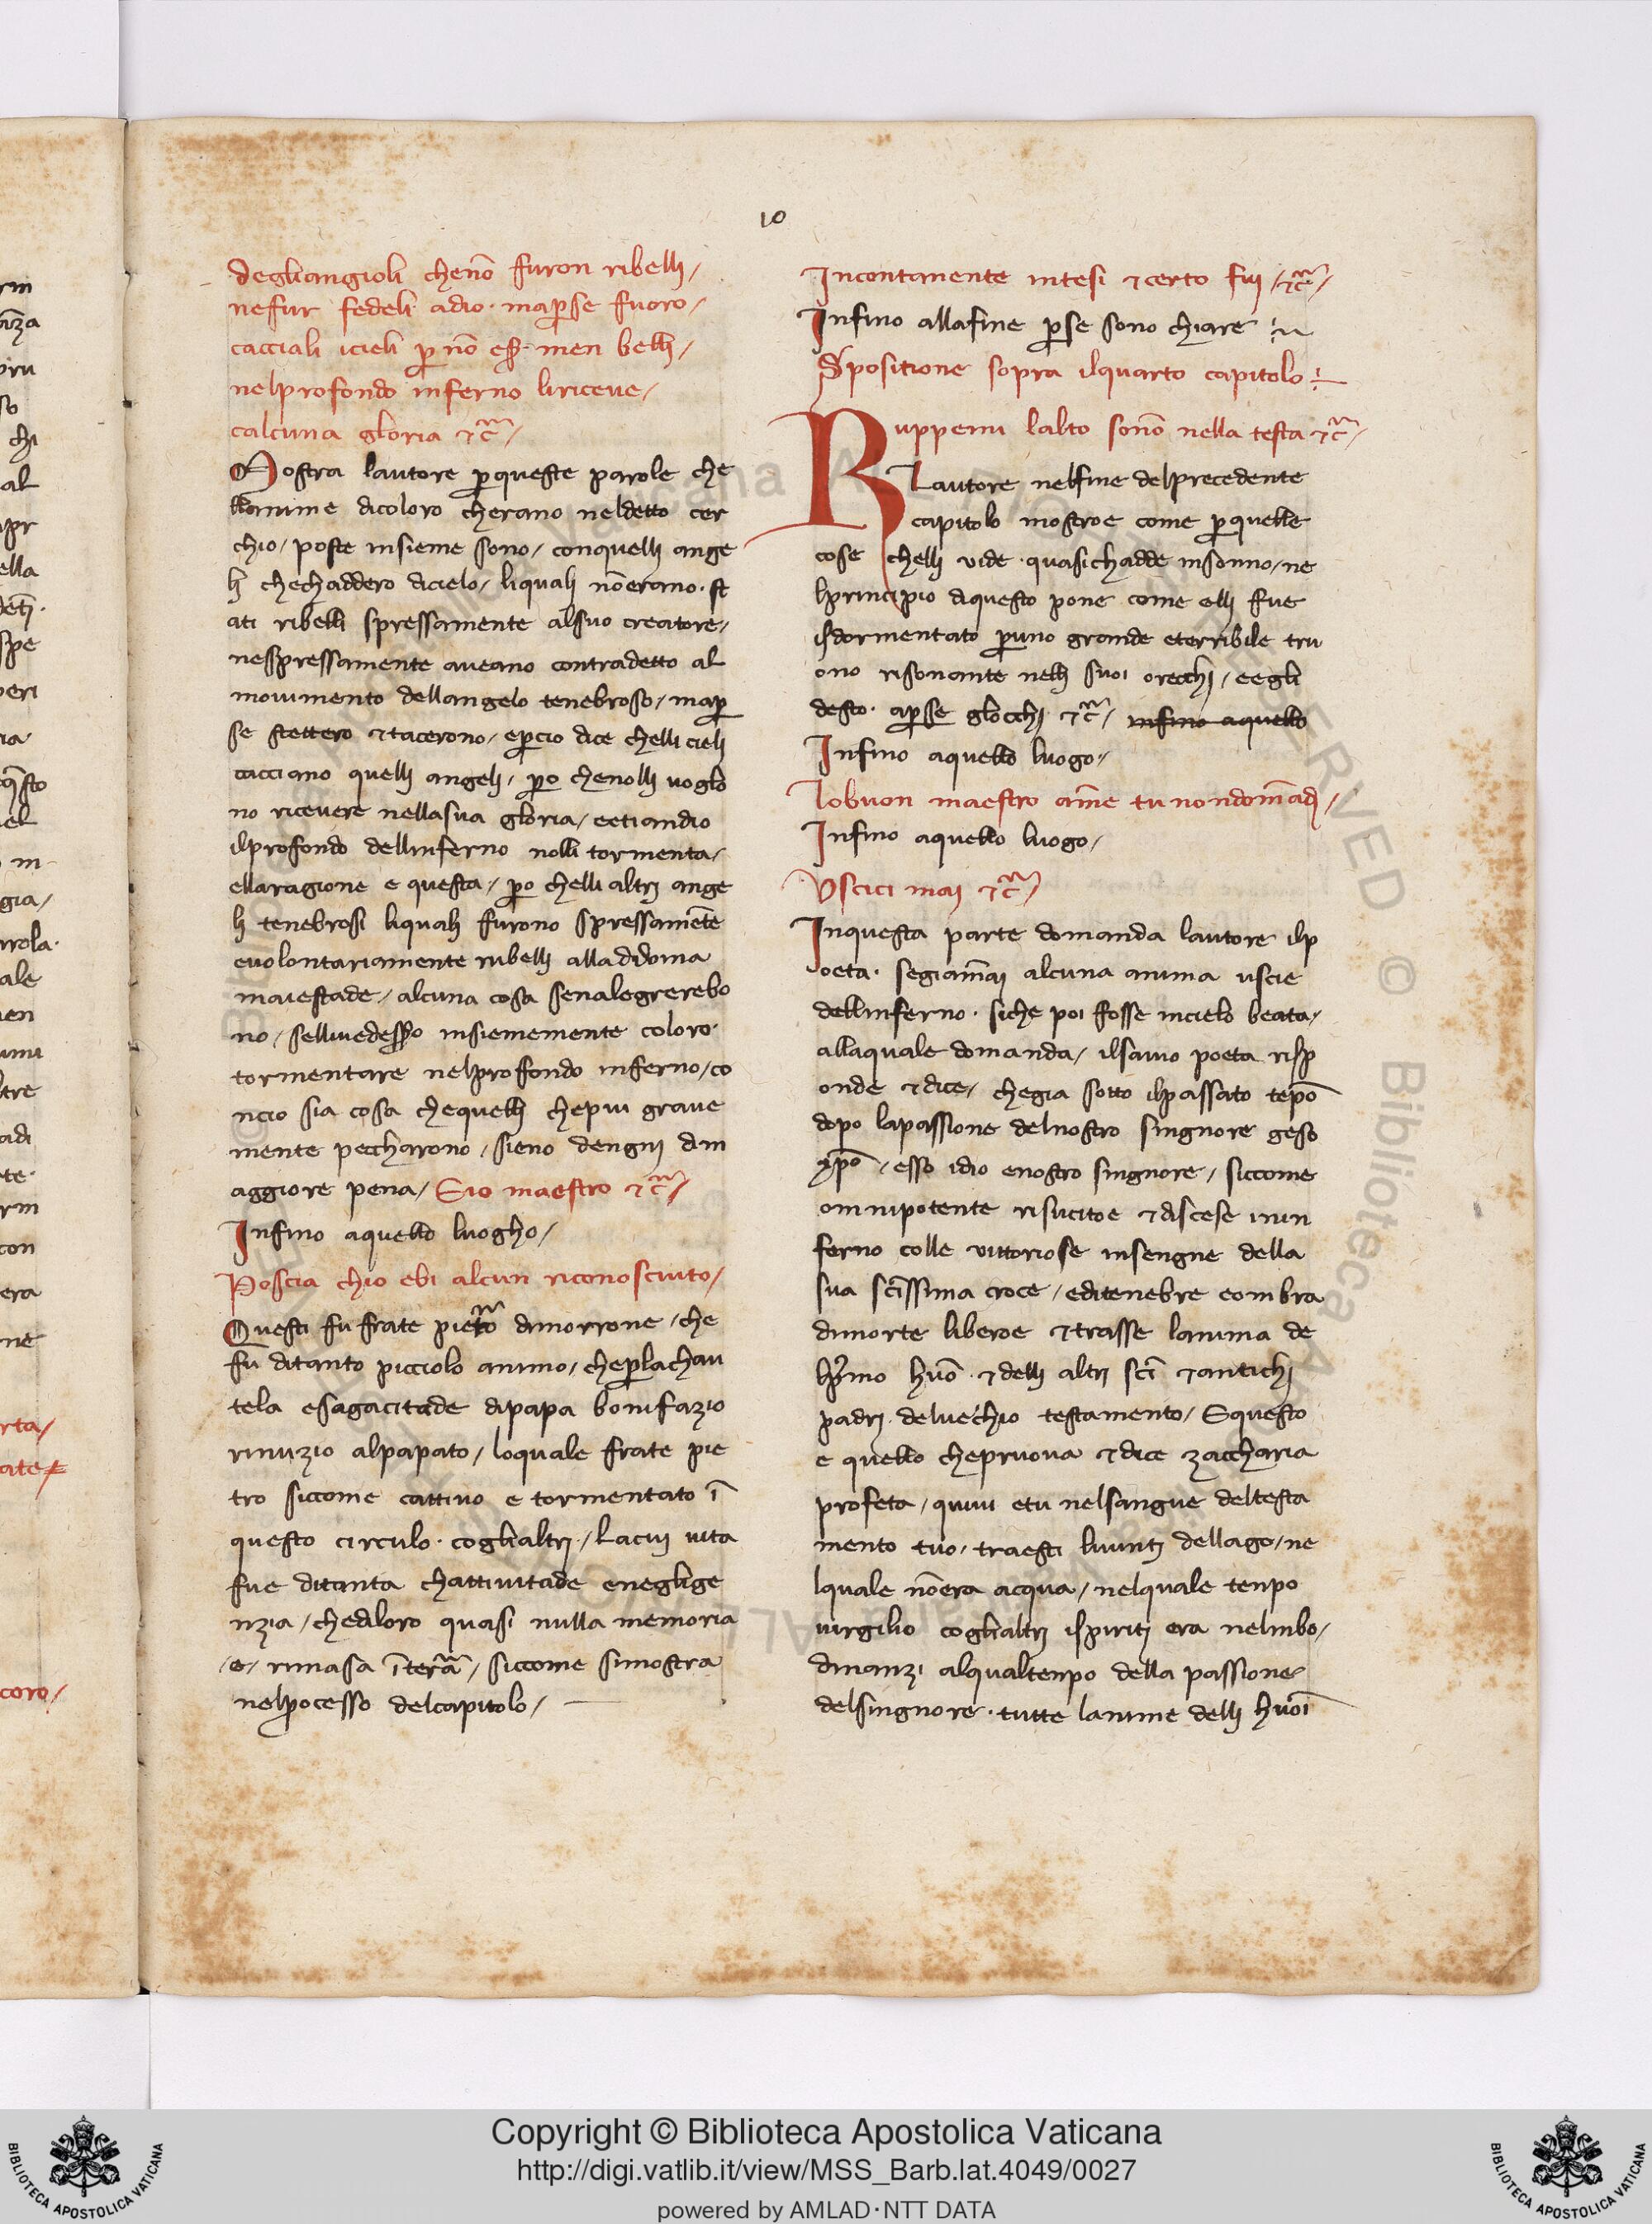 10
degliangioli chenō furon ribelli/
nefur fedeli adio · map̱se fuoro/
cacciali icieli p̱ nō eſſ · men belli/
nelprofondo inferno liriceve/
calcuna gloria ⁊c̄/
Mostra lautore p̱queste parole che
llanime dicoloro cherano neldetto cer
chio/ poste insieme sono/ conquelli ange
li chechaddero dicielo/ liquali nōerano · st
ati ribelli spressamente alsuo creatore/
nespressamente aveano contradetto al
movimento dellangelo tenebroso/ map̱
se stettero ⁊tacerono/ ep̱cio dice chelli cieli
cacciano quelli angeli/ p̱o chenolli voglo
no ricevere nellasua gloria/ eetiandio
ilprofondo dellinferno nolli tormenta/
ellaragione e questa/ p̱o chelli altri ange
li tenebrosi liquali furono spressamēte
evolontariamente rubelli alladivina
maiestade/ alcuna cosa senalegrerebo
no/ sellivedesſo insiememente coloro·
tormentare nelprofondo inferno/ co
ncio sia cosa chequelli chepiu grave
mente peccharono/ sieno dengni dim
aggiore pena/ Eio maestro ⁊c̄/
Infino aquello luogho/
Poscia chio ebi alcun riconosciuto/
Questi fu frate pietro dimorrone/ che
fu ditanto picciolo animo/ chep̱lachau
tela esagacitade dipapa bonifazio
rinuzio alpapato/ loquale frate pie
tro siccome cattivo e tormentato ī
questo circulo · coglialtri/ Lacui vita
fue ditanta chattivitade eneglige
nzia/ chediloro quasi nulla memoria
/e/ rimasa īterrā/ siccome simostra
nelp̱ocesso delcapitolo/
Incontanente intesi ⁊certo fui/ ⁊c̄/
Infino allafine p̱se sono chiare
Spositione sopra ilquarto capitolo
Ruppemi lalto sonō nella testa ⁊c̄/
Lautore nelfine delprecedente
capitolo mostroe come p̱quelle
cose chelli vide · quasichadde insonno/ ne
lprincipio diquesto pone come elli fue
isdormentato p̱uno grande eterribile tru
ono risonante nelli suoi orecchi/ eegli
desto · ap̱se glocchi ⁊c̄/ infino aquello
Infino aquello luogo/
Lobuon maestro ame tu nondomādi/
Infino aquello luogo/
Uscici mai ⁊c̄/
Inquesta parte domanda lautore ilp
oeta · segiamai alcuna anima uscie
dellinferno · siche poi fosse incielo beata/
allaquale domanda/ ilsavio poeta risp
onde ⁊dice/ chegia sotto ilpassato tēpo
dopo lapassione delnostro singnore geso
xp̄o/ esso idio enostro singnore/ siccome
omnipotente risucitoe ⁊discese inin
ferno colle vittoriose insengne della
sua scīssima croce/ editenebre eombra
dimorte liberoe ⁊trasse lanima de
lp̱imo huō · ⁊delli altri scī ⁊antichi
padri · delvechio testamento/ Equesto
e quello chepruova ⁊dice zaccharia
profeta/ quivi etu nelsangue deltesta
mento tuo/ traesti livinti dellago/ ne
lquale nōera acqua/ nelquale tenpo
virgilio coglialtri ispiriti era nelinbo/
dinanzi alqualtenpo della passione
delsingnore · tutte lanime delli huoī
Copyright © Biblioteca Apostolica Vaticana
http://digi.vatlib.it/view/MSS_Barb.lat.4049/0027
powered by AMLAD·NTT DATA
BIBLIOTECA APOSTOLICA VATICANA
BIBLIOTECA APOSTOLICA VATICANA